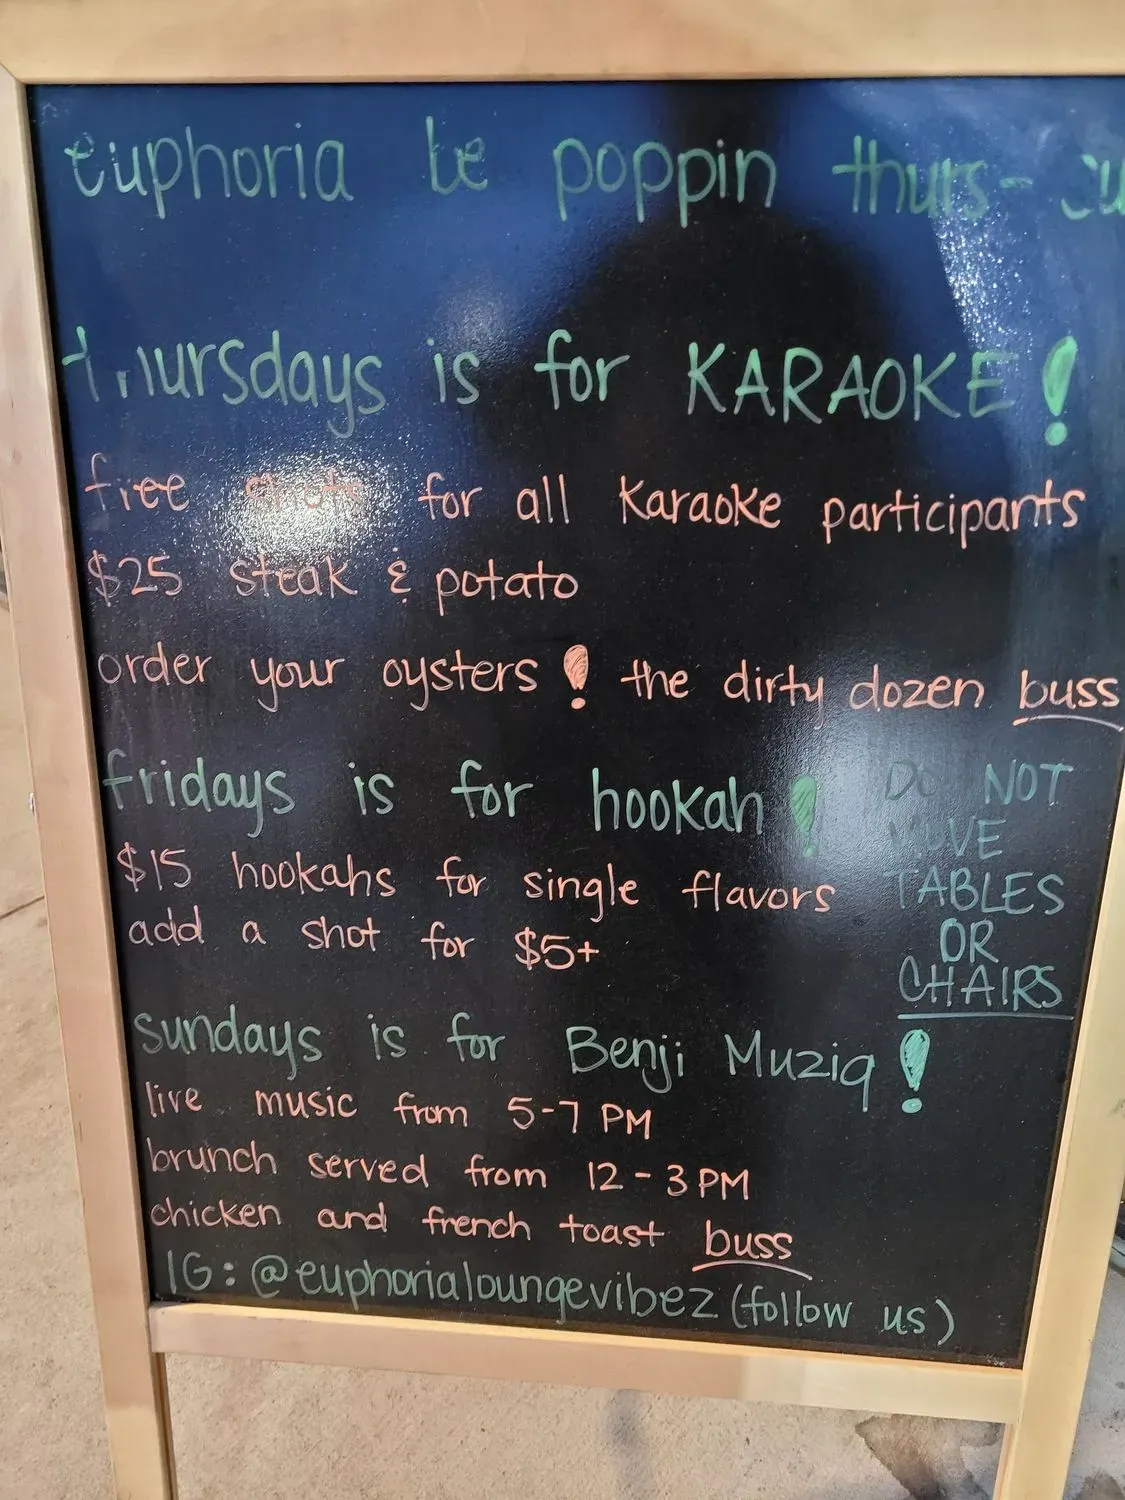 euphoria be poppin thurs-
thursdays is for KARAOKE!
free shots for all karaoke participants
$25 steak & potato
order your oysters! the dirty dozen buss
fridays is for hookah!
$15 hookahs for single flavors
add a shot for $5+
DO NOT
MOVE
TABLES
OR
CHAIRS
sundays is for Benji Muziq!
live music from 5-7 PM
brunch served from 12-3 PM
chicken and french toast buss
IG: @euphorialoungevibez (follow us)